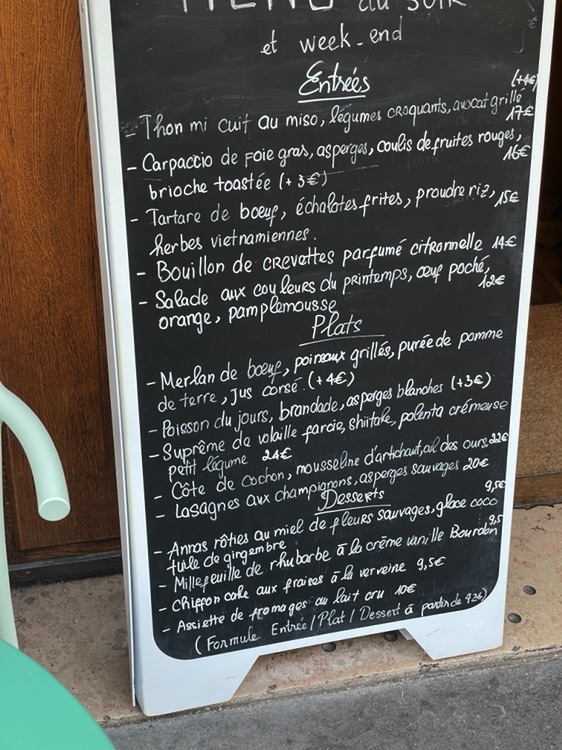 MENU du soir
et week-end
Entrées
(+4€)
- Thon mi cuit au miso, légumes croquants, avocat grillé
17€
- Carpaccio de foie gras, asperges, coulis de fruites rouges,
16€
brioche toastée (+3€)
- Tartare de boeuf, échalotes frites, proudre riz, 15€
herbes vietnamiennes.
- Bouillon de crevettes parfumé citronnelle 14€
- Salade aux couleurs du printemps, œuf poché,
12€
orange, pamplemousse
Plats
- Merlan de boeuf, poireaux grillés, purée de pomme
de terre, jus corsé. (+4€)
- Poisson du jours, brandade, asperges blanches (+3€)
- Suprême de volaille farcie, shiitake, polenta crémeuse
petit légume 24€
- Côte de cochon, mousseline d'artichaut, ail des ours 22€
- Lasagnes aux champignons, asperges sauvages 20€
Desserts
9,5€
- Annas rôties au miel de fleurs sauvages, glace coco
tuile de gingembre
9,5
- Millefeuille de rhubarbe à la crème vanille Bourdon
- Chiffon cake aux fraises à la verveine 9,5€
- Assiette de fromages au lait cru 10€
(Formule Entrée / Plat / Dessert à partir de 42€)